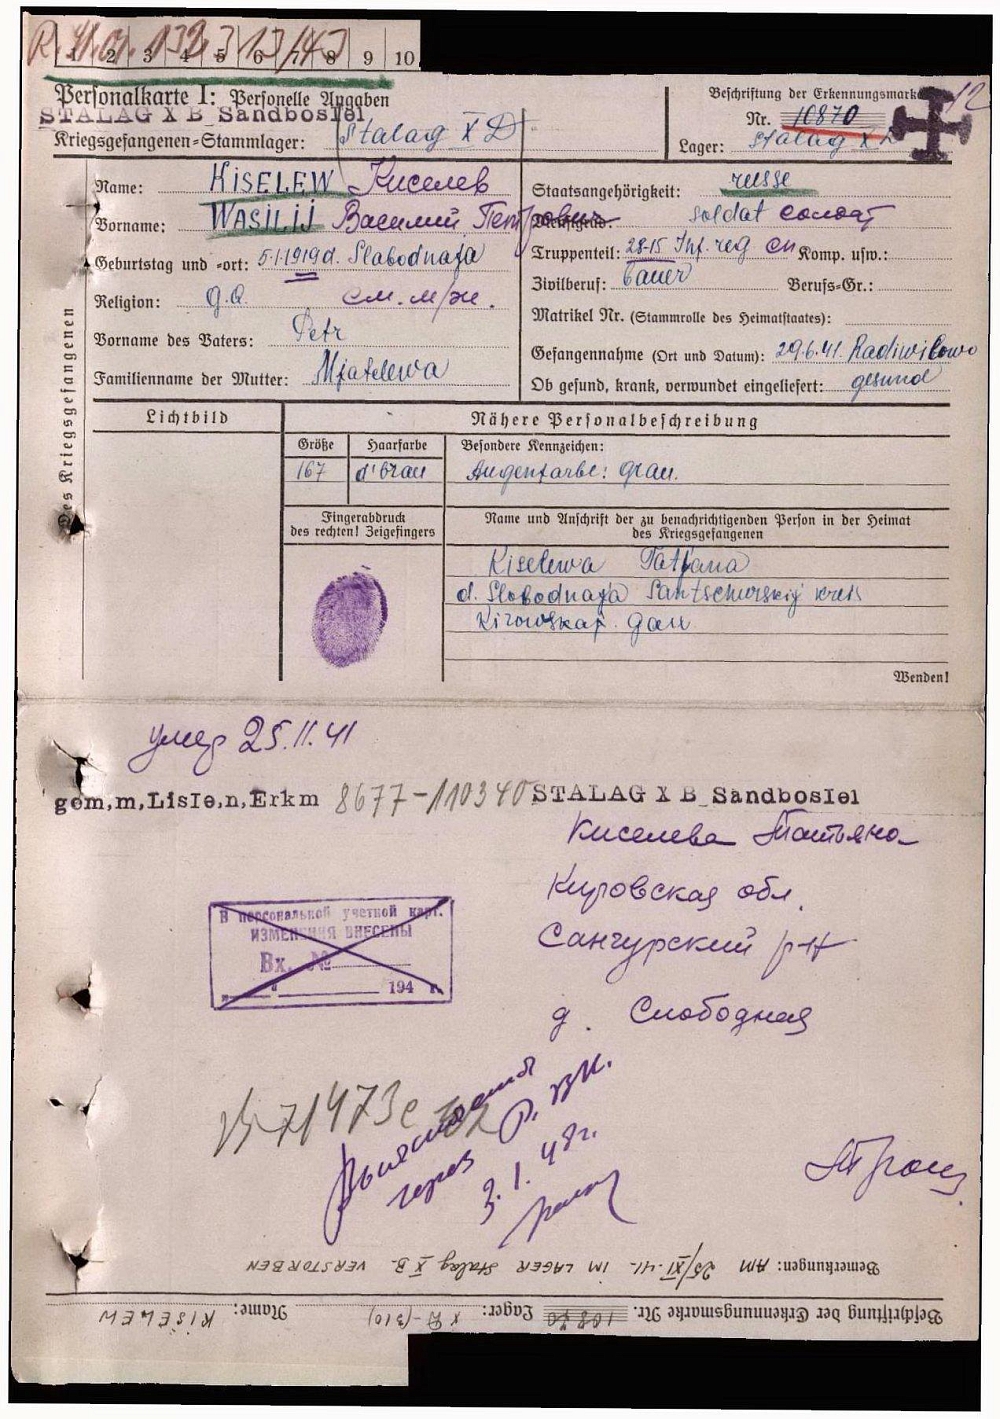 1 2 3 4 5 6 7 8 9 10
Personalkarte I: Personelle Angaben
STALAG X B Sandbostel
Kriegsgefangenen-Stammlager: Stalag X D
Beschriftung der Erkennungsmarke
Nr. 10870
Lager: Stalag X D
12
Des Kriegsgefangenen
Name: KISELEW Киселев
Vorname: WASILIJ Василий Петрович
Geburtstag und -ort: 5.1.1919 d. Slabodnaja
Religion: g.o. см. м/ж.
Vorname des Vaters: Petr
Familienname der Mutter: Mjatelewa
Staatsangehörigkeit: russe
Dienstgrad: soldat солдат
Truppenteil: 28-15 Inf. reg сп Komp. usw.:
Zivilberuf: bauer Berufs-Gr.:
Matrikel Nr. (Stammrolle des Heimatstaates):
Gefangennahme (Ort und Datum): 29.6.41. Radiwilowo
Ob gesund, krank, verwundet eingeliefert: gesund
Lichtbild
Nähere Personalbeschreibung
Größe Haarfarbe Besondere Kennzeichen:
167 d'brau Augenfarbe: grau.
Fingerabdruck
des rechten! Zeigefingers
Name und Anschrift der zu benachrichtigenden Person in der Heimat
des Kriegsgefangenen
Kiselewa Tatjana
d. Slobodnaja Santschurskij kreis
Kirowskaj. Gau
Wenden!
умер 25.11.41
gem,m,Liste,n,Erkm 8677-110340 STALAG X B Sandbostel
Киселева Татьяна
Кировская обл.
Санчурский р-н
д. Слободная
В персональной учетной карт.
ИЗМЕНЕНИЯ ВНЕСЕНЫ
Вх. №
194 г.
71473е
через Р.ВК.
3.1.48г.
Bemerkungen: AM 25/XI-41. IM LAGER Stalag X B. VERSTORBEN
Beschriftung der Erkennungsmarke Nr. 10870 Lager: X D (310) Name: KISELEW